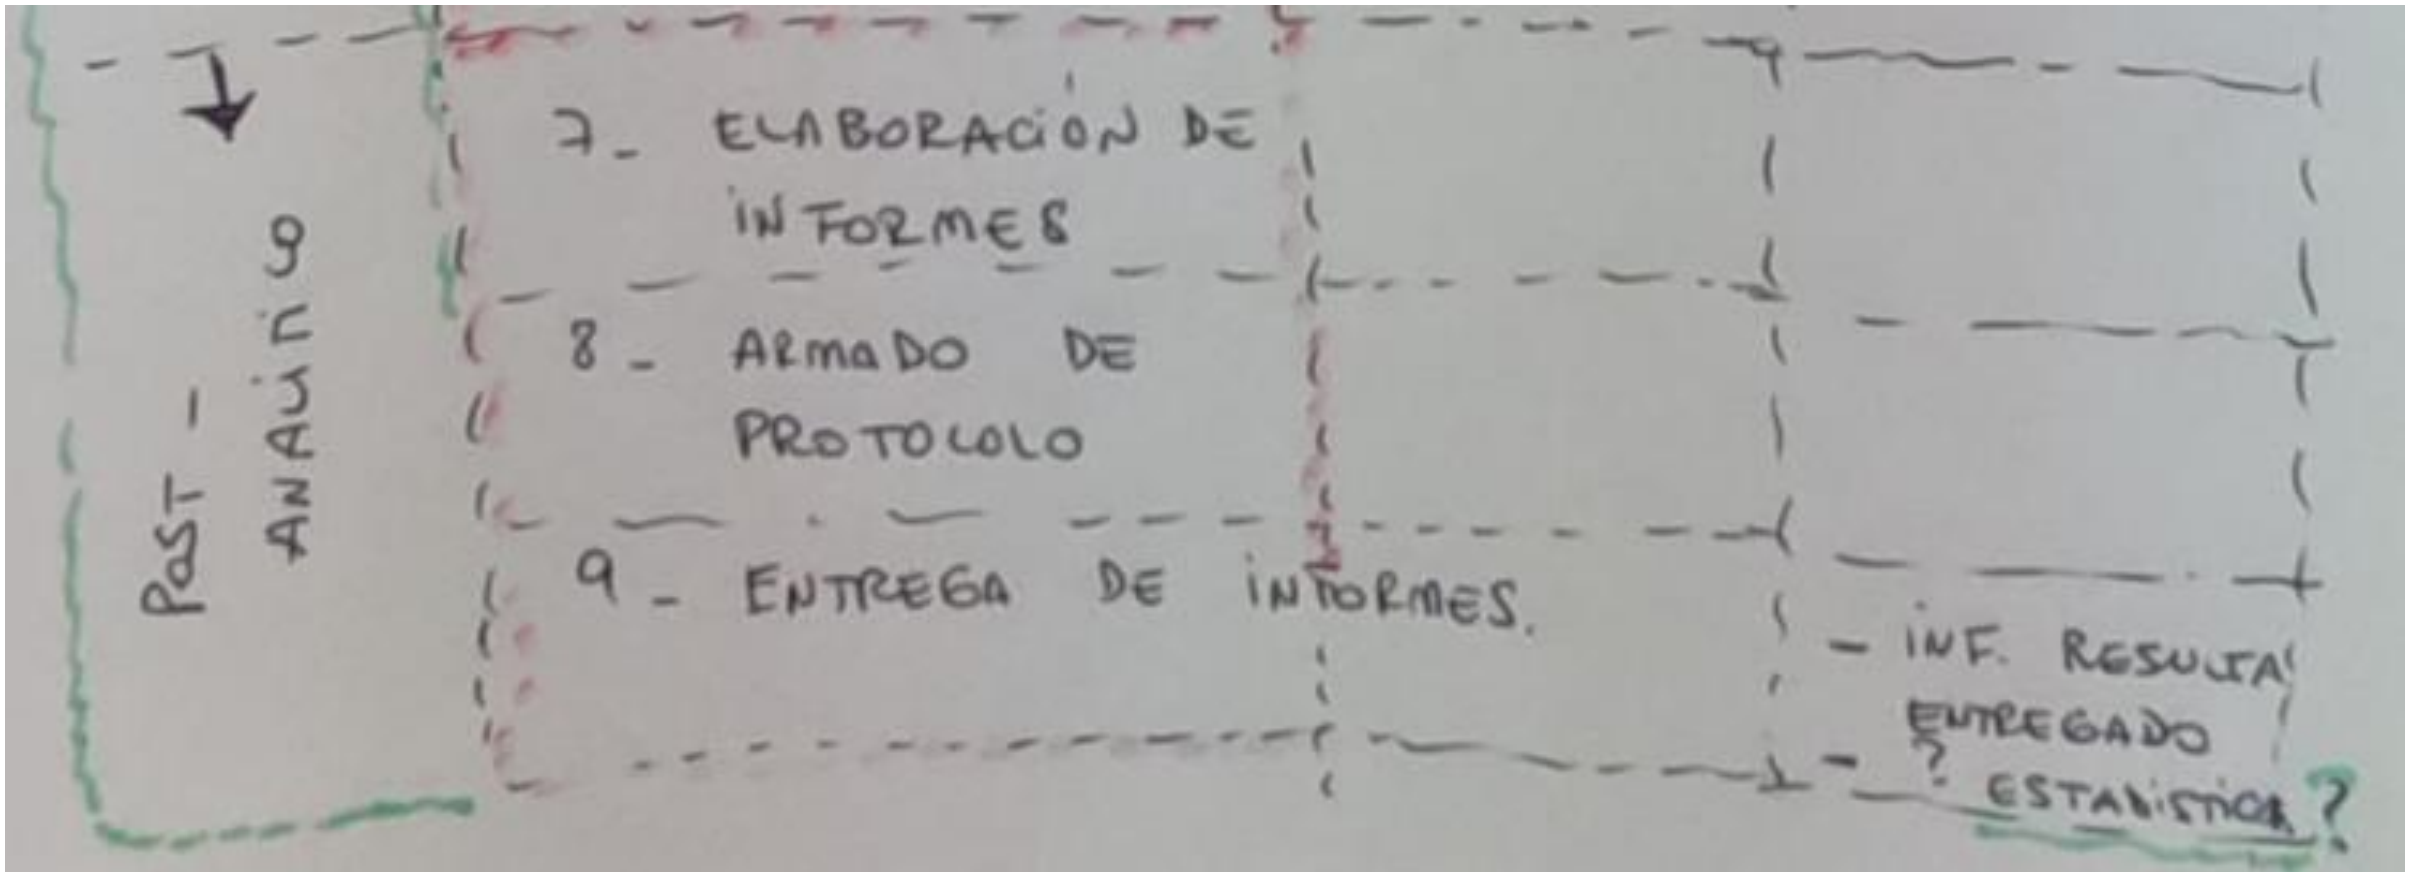 POST -
ANALITICO
7- ELABORACIÓN DE
INFORMES
8- ARMADO DE
PROTOCOLO
9- ENTREGA DE INFORMES.
- INF. RESULTA
ENTREGADO
- ? ESTADISTICA ?